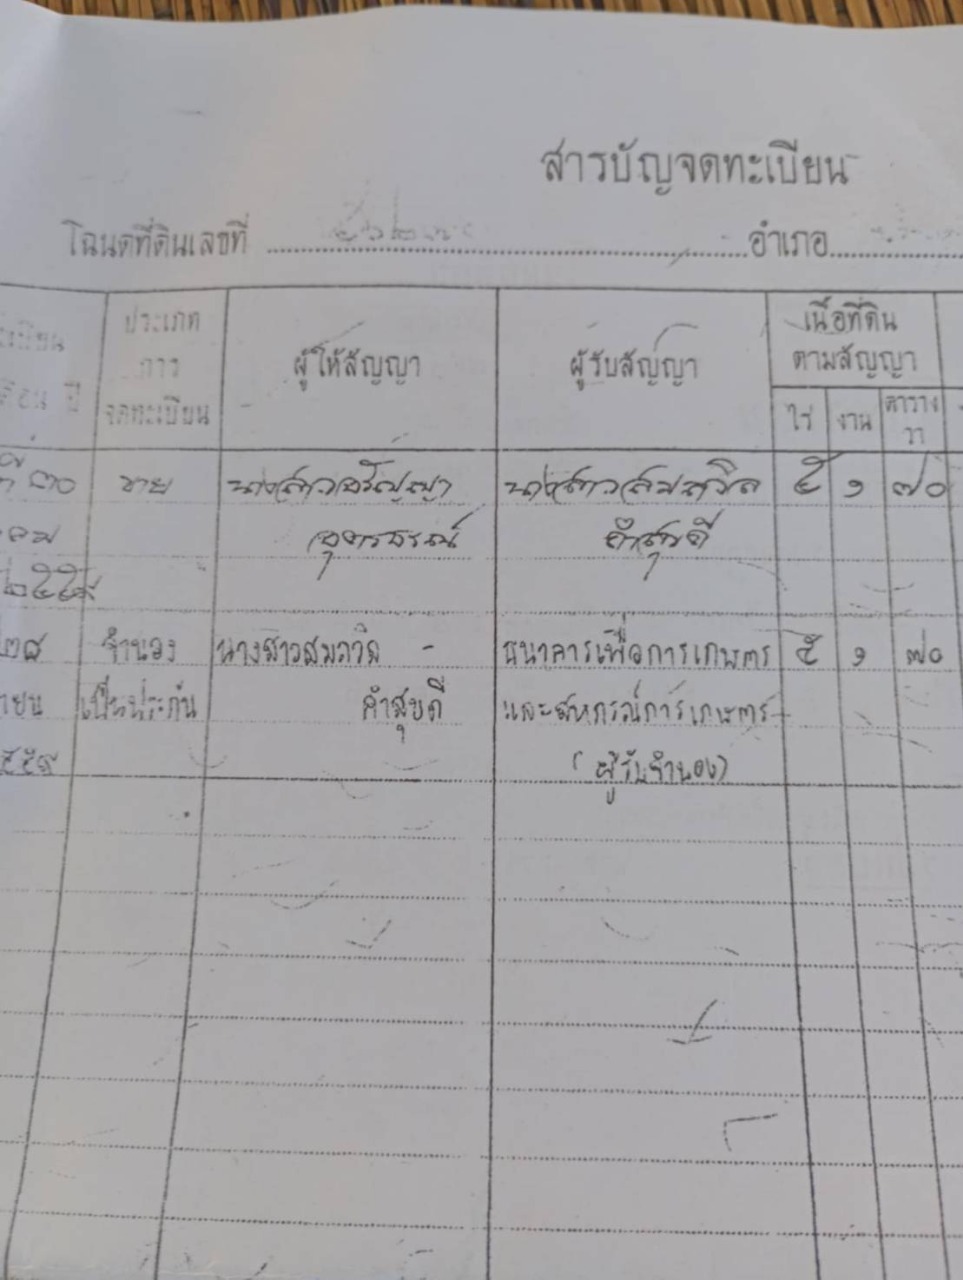 สารบัญจดทะเบียน
โฉนดที่ดินเลขที่ อำเภอ
ประเภท
การ
จดทะเบียน
ผู้ให้สัญญา
ผู้รับสัญญา
เนื้อที่ดิน
ตามสัญญา
ไร่ งาน ตาราง
วา
ที่ ๓๐ ขาย นางสาว นางสาว ๕ ๑ ๗๐
คำสุขดี
๒๕๕๙
๒๘ จำนอง นางสาวสมถวิล - ธนาคารเพื่อการเกษตร ๕ ๑ ๗๐
ายน เป็นประกัน คำสุขดี และสหกรณ์การเกษตร
๕๕๙ (ผู้รับจำนอง)